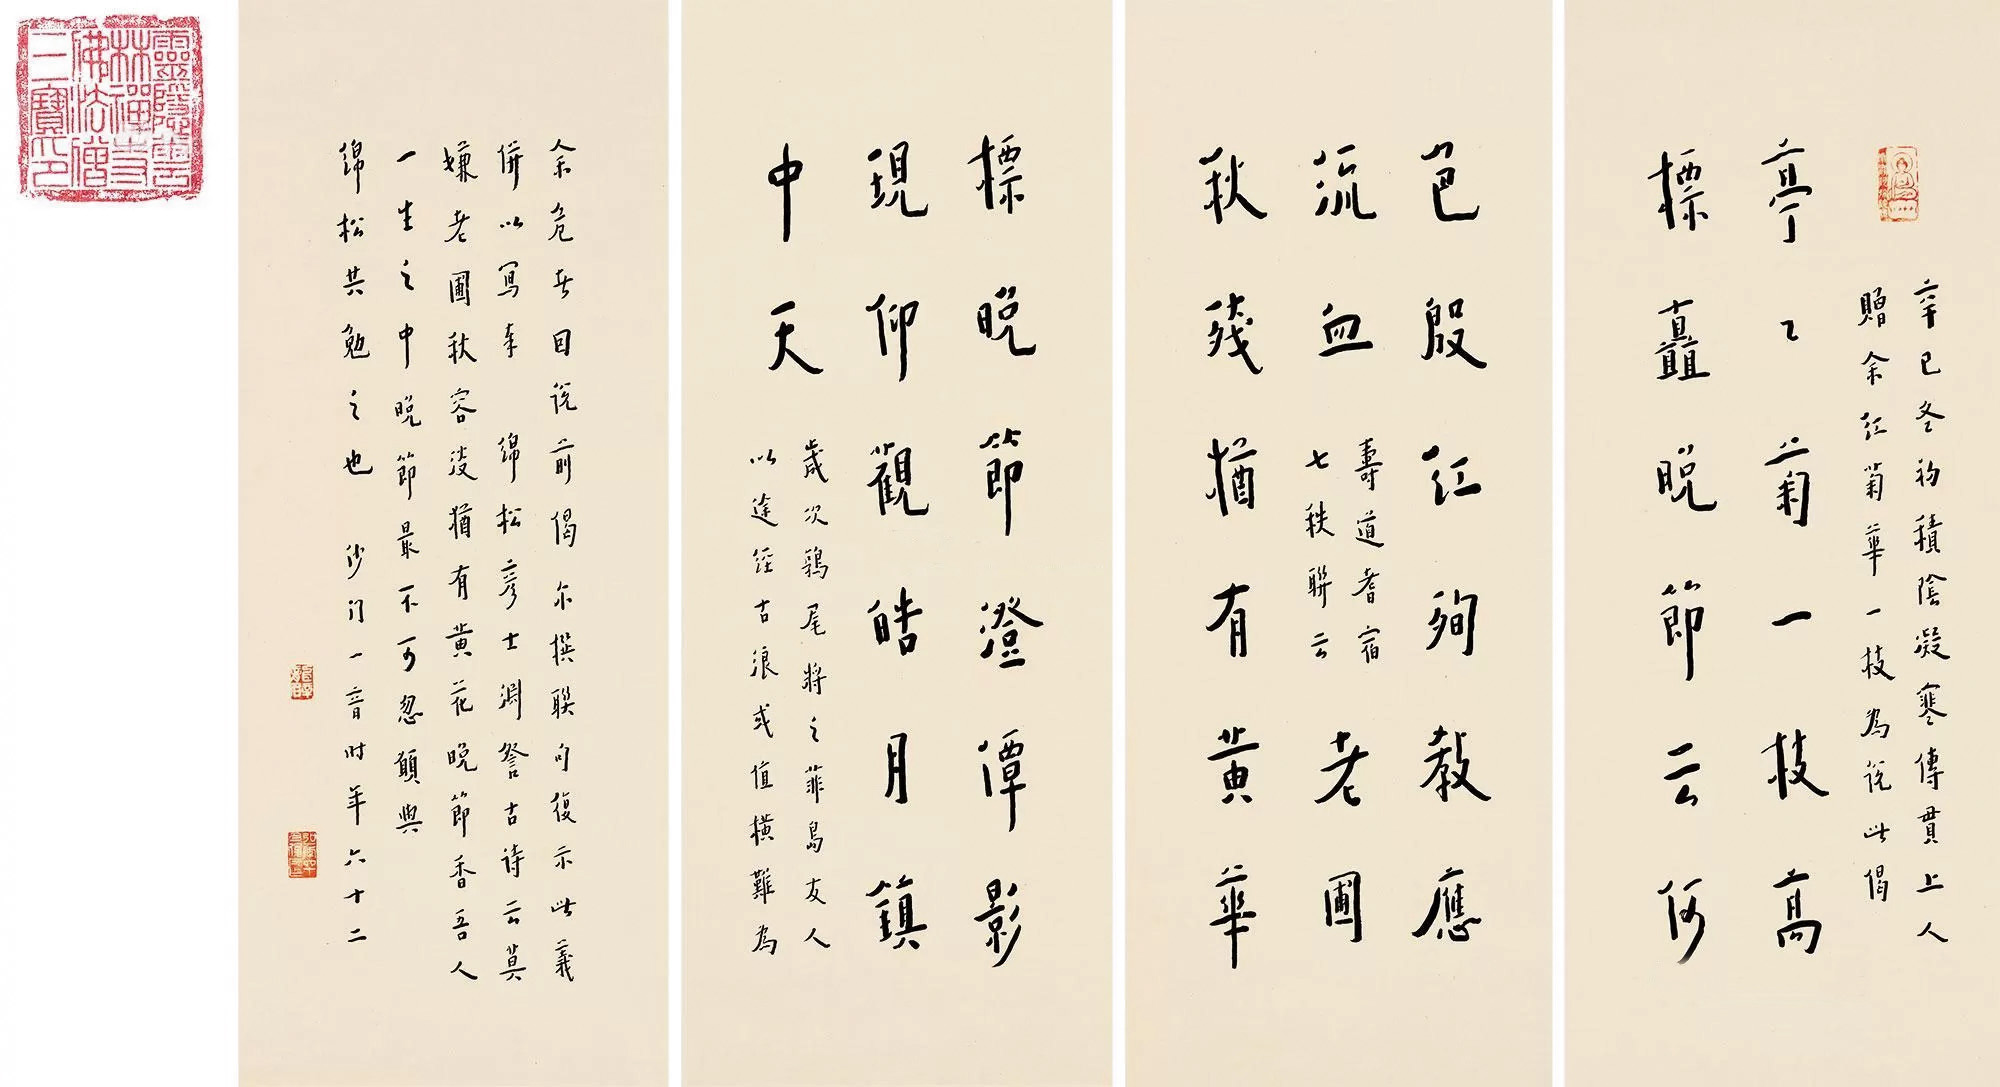 辛巳冬初積陰凝寒傳貫上人
贈余紅菊華一枝為說此偈
亭〻菊一枝高
標矗晚節云何
色殷紅殉教應
流血
壽道耆宿
七秩聯云
老圃
秋殘猶有黃華
標晚節澄潭影
現仰觀皓月鎮
中天
歲次鶉尾將之菲島友人
以途徑古浪或值橫難為
余危者因說前偈尒撰聯句復示此義
併以寫奉 綿松彥士淵詧古詩云莫
嫌老圃秋容淡猶有黃花晚節香吾人
一生之中晚節最不可忽願與
綿松共勉之也 沙門一音時年六十二
靈隱雲
林禪寺
佛法僧
三寶印